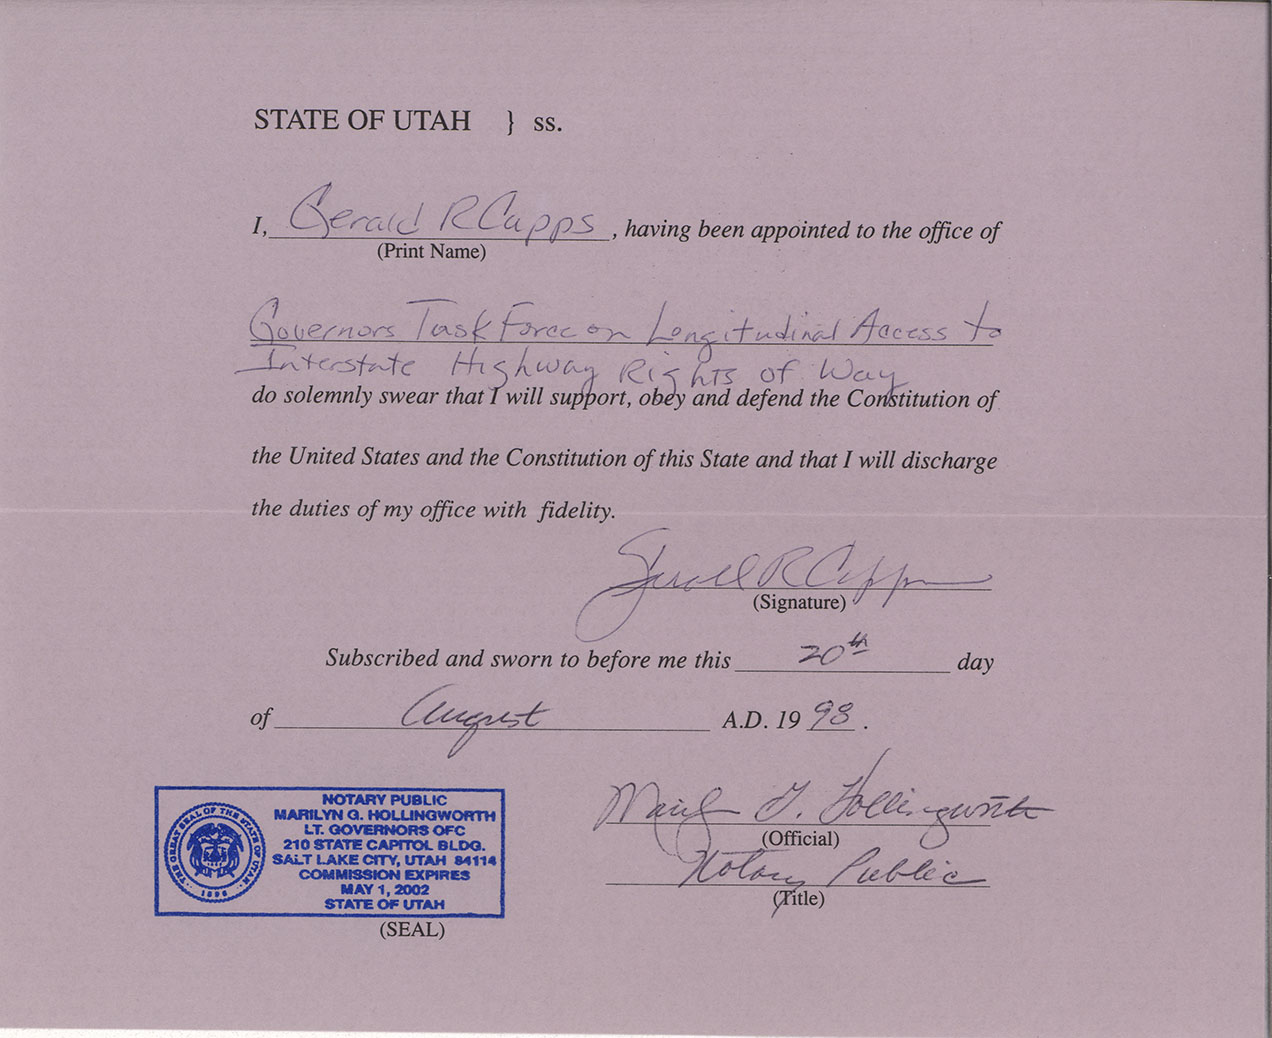 STATE OF UTAH } ss.
I, Gerald R Capps, having been appointed to the office of
(Print Name)
Governors Task Force on Longitudinal Access to
Interstate Highway Rights of Way
do solemnly swear that I will support, obey and defend the Constitution of
the United States and the Constitution of this State and that I will discharge
the duties of my office with fidelity.
Gerald R Capps
(Signature)
Subscribed and sworn to before me this 20th day
of August A.D. 1998.
Marilyn G. Hollingworth
(Official)
Notary Public
(Title)
THE GREAT SEAL OF THE STATE OF UTAH
1896
NOTARY PUBLIC
MARILYN G. HOLLINGWORTH
LT. GOVERNORS OFC
210 STATE CAPITOL BLDG.
SALT LAKE CITY, UTAH 84114
COMMISSION EXPIRES
MAY 1, 2002
STATE OF UTAH
(SEAL)